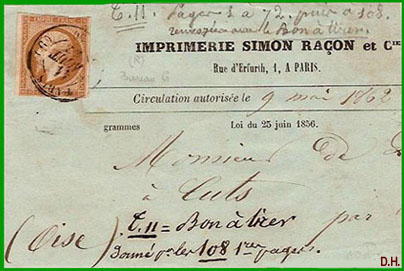 T. 11. Pages 1 à 72, puis à 108.
renvoyées avec le Bon à tirer.
IMPRIMERIE SIMON RAÇON et Cie
Rue d'Erfurth, 1, A PARIS.
(R)
Bureau G
PARIS
Circulation autorisée le 9 mai 1862
grammes Loi du 25 juin 1856.
Monsieur de
à Cuts
(Oise) T. 11 = Bon à tirer par
Donné p. les 108 1res pages.
D.H.